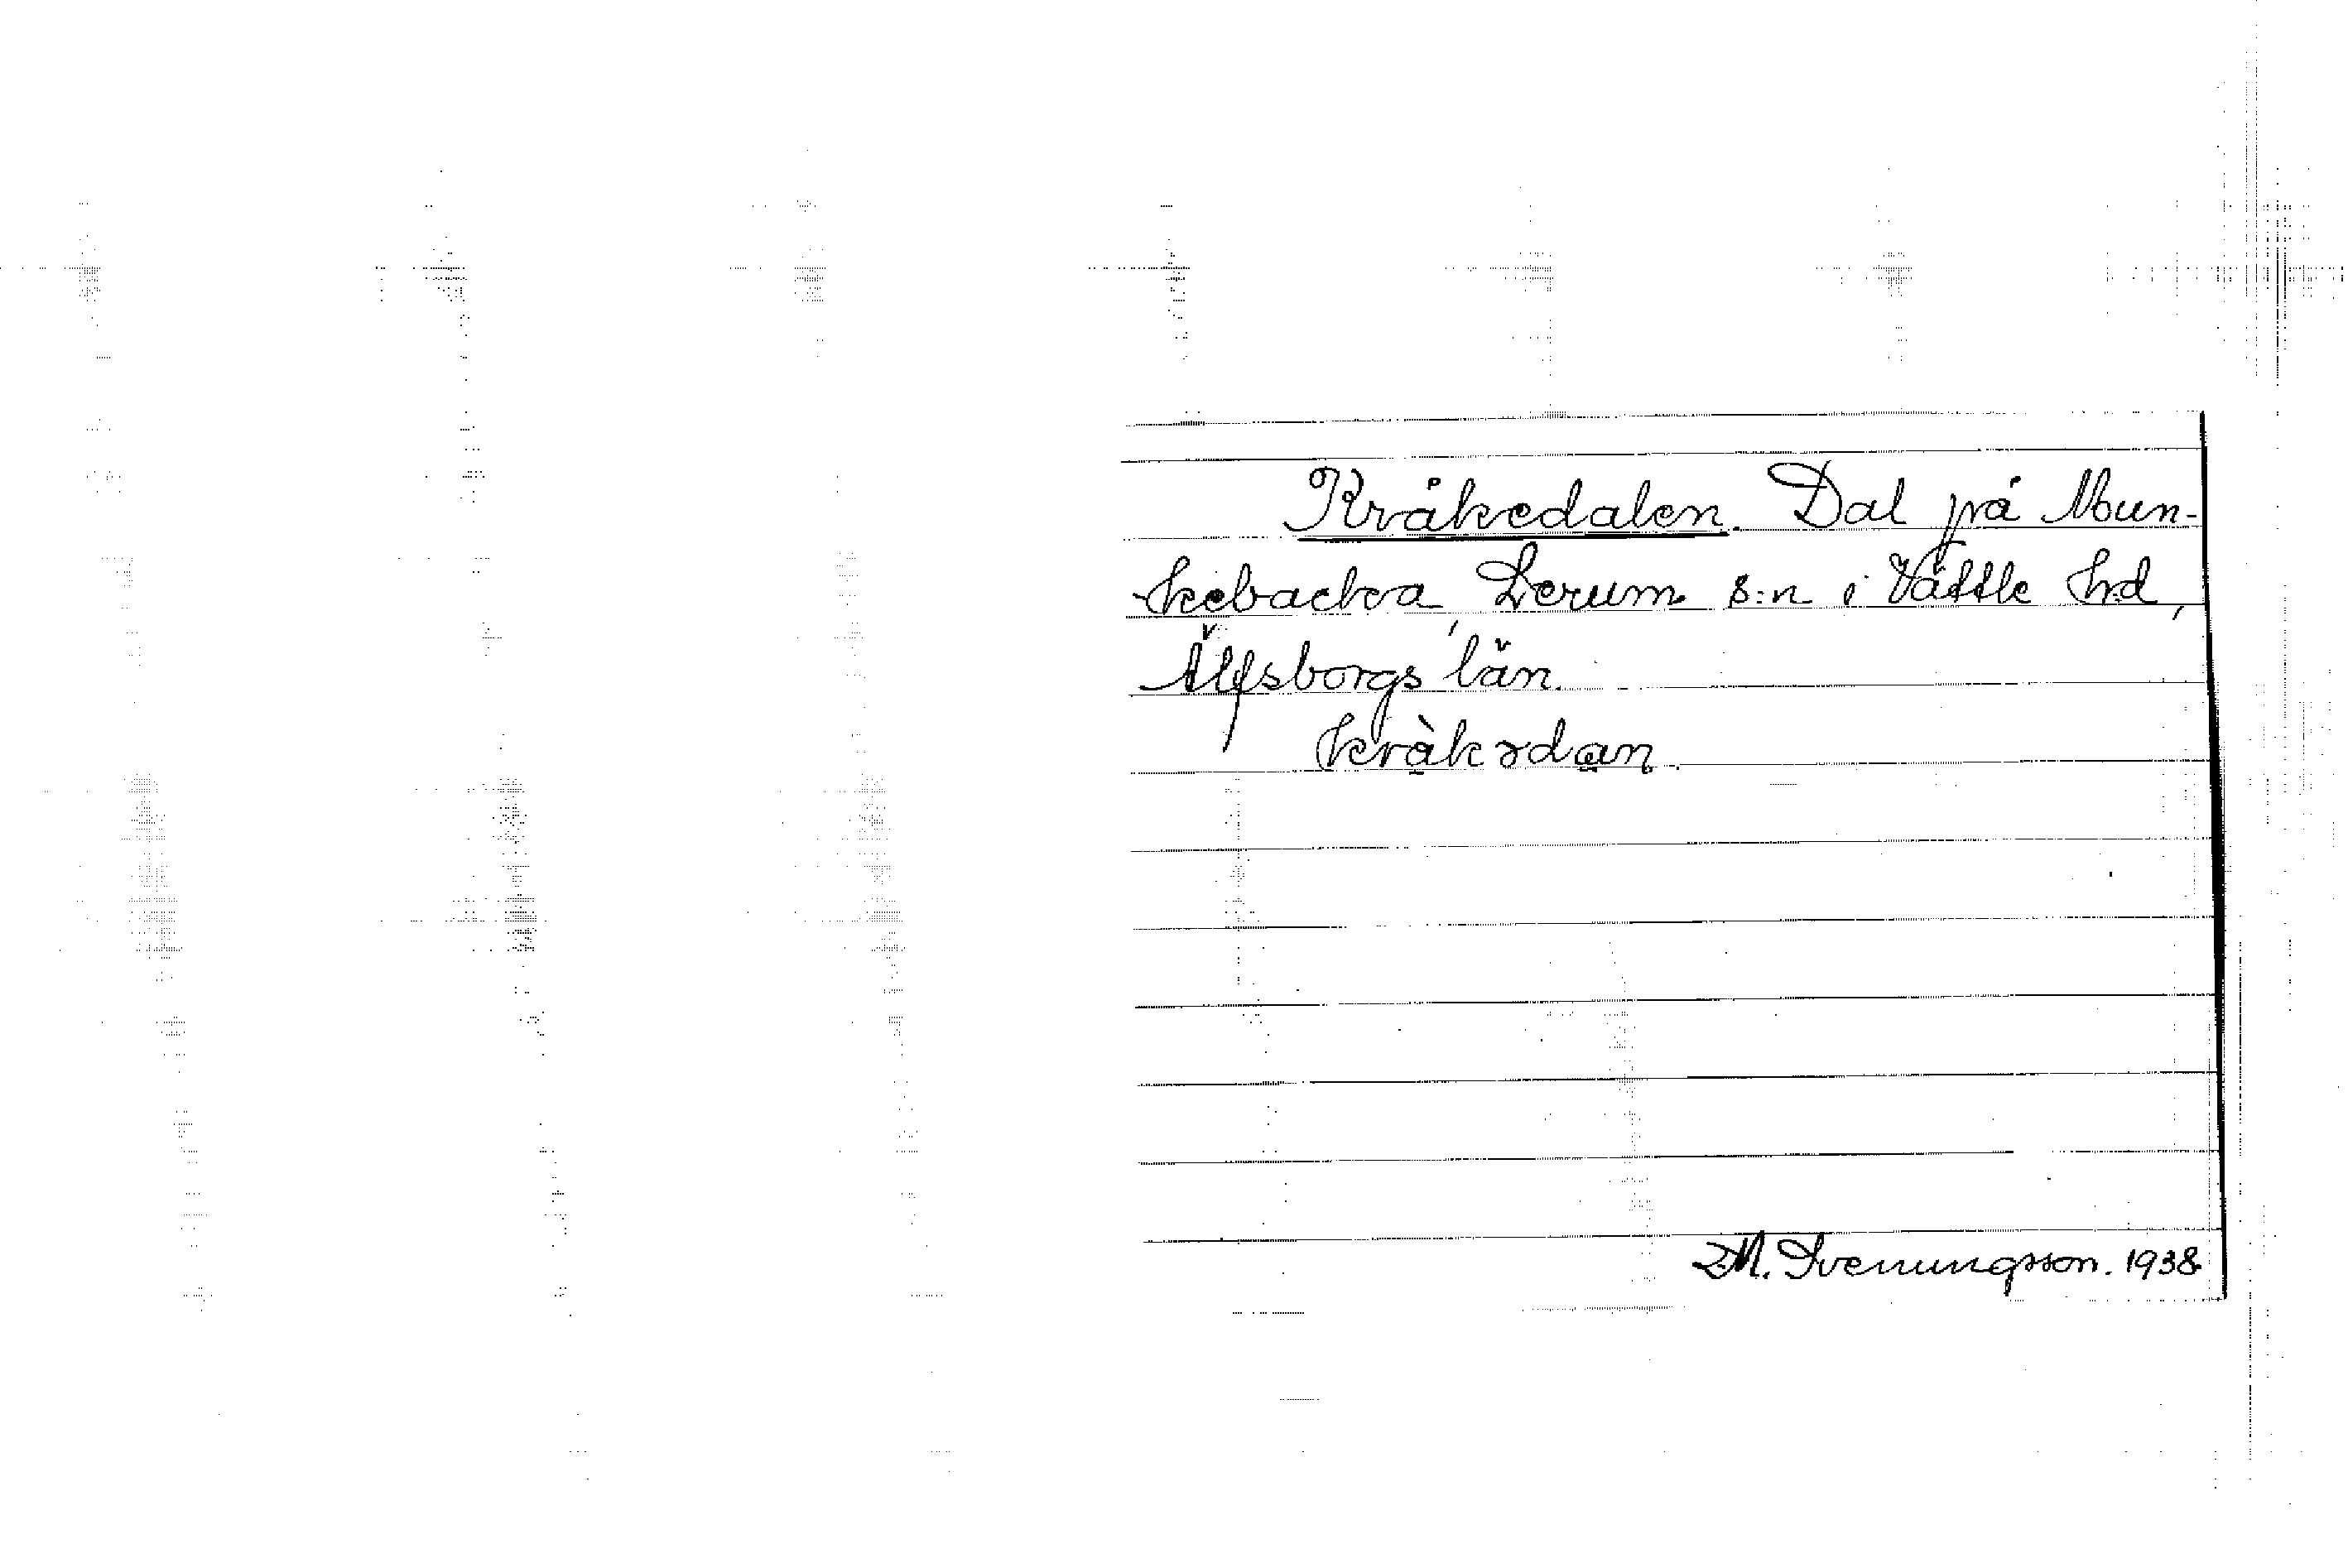 Kråkedalen. Dal på Mun-
kebacka, Lerum s:n i Vättle hd,
Älfsborgs län.
kràkədan
D.M. Svenungsson. 1938